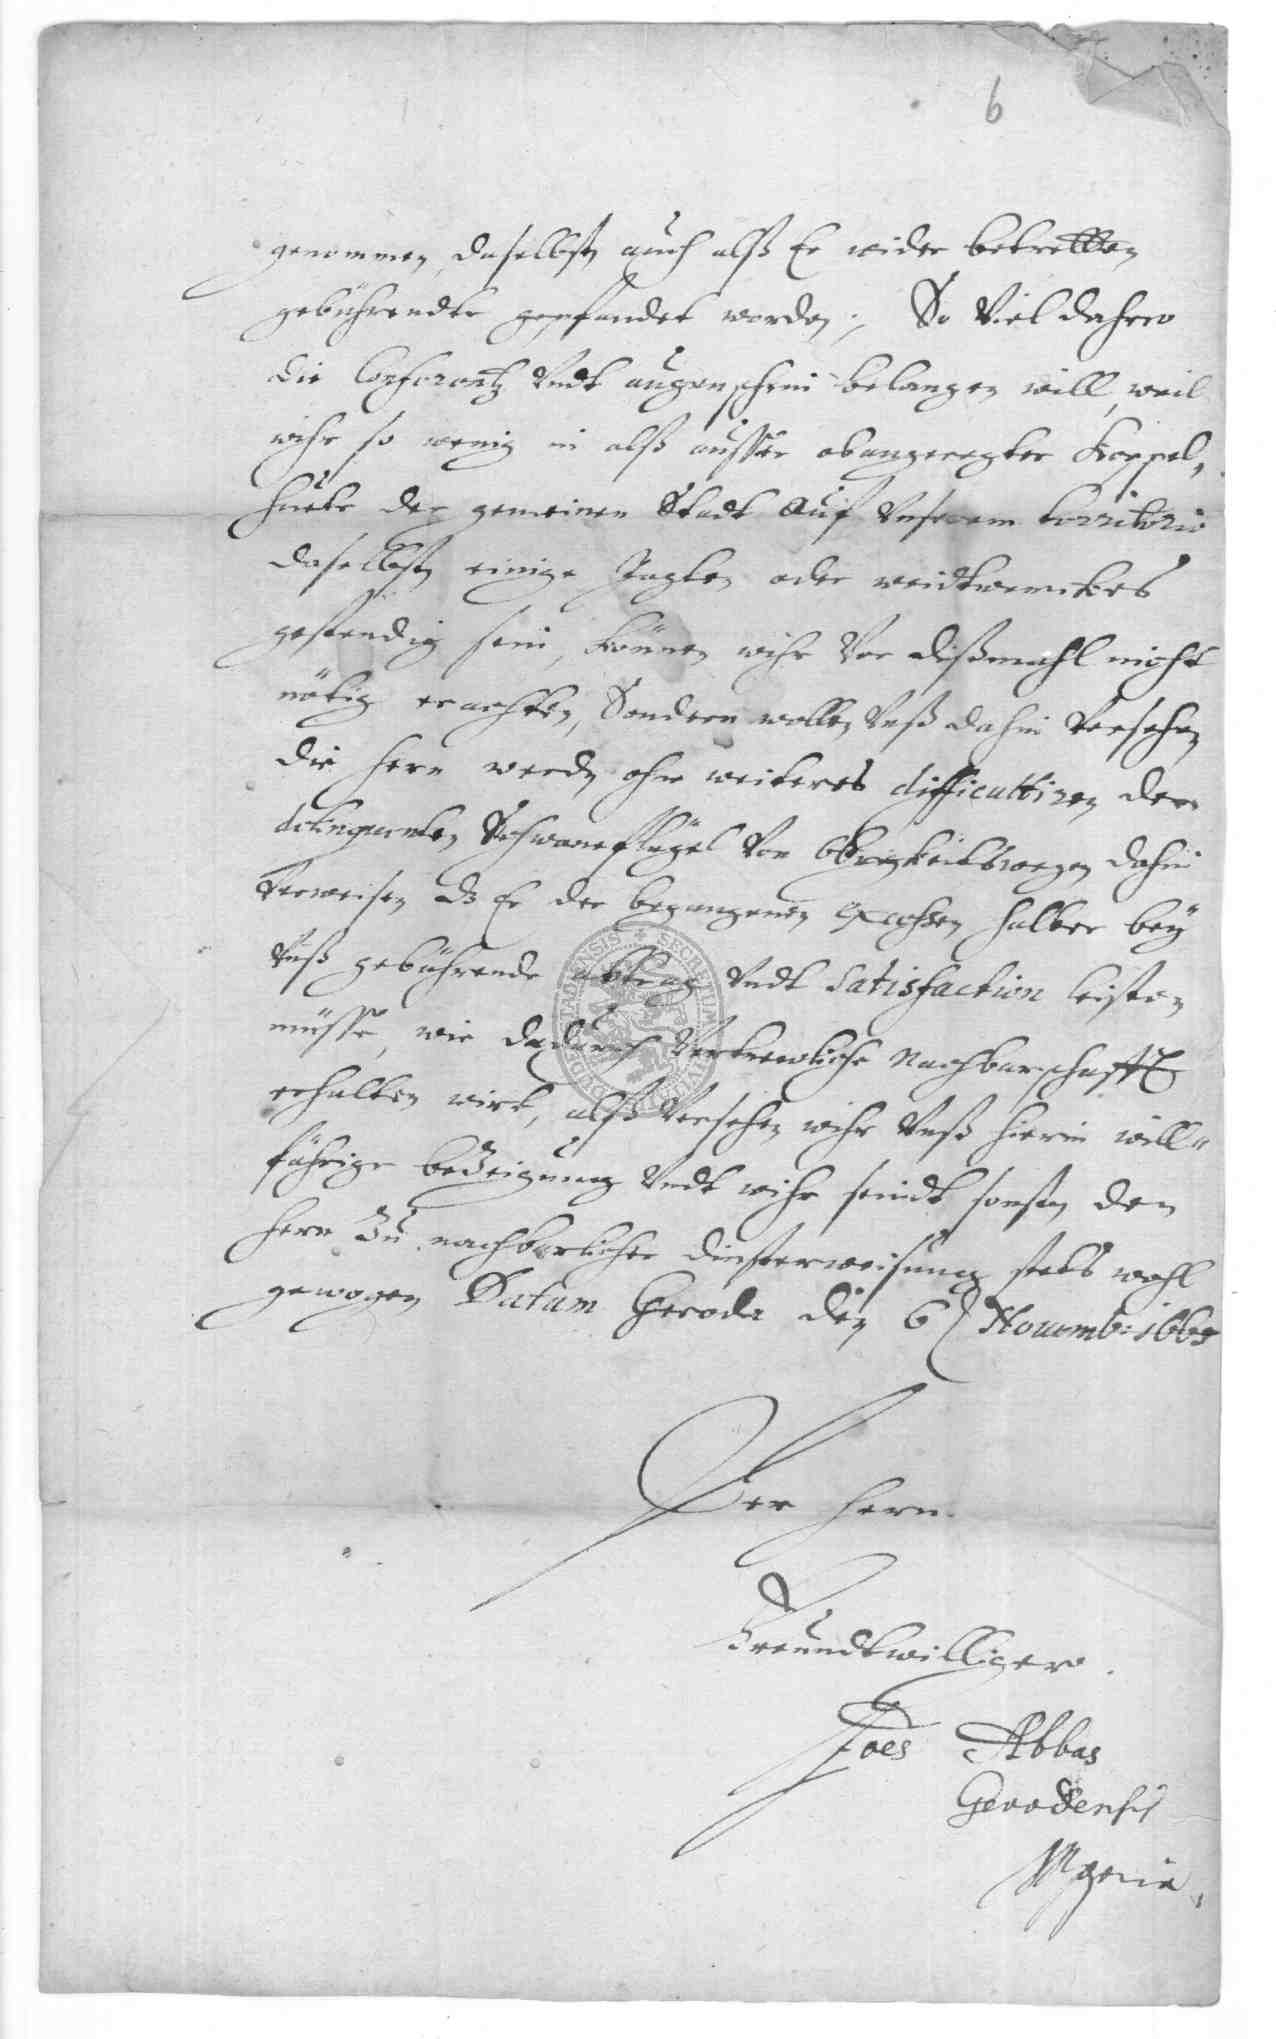 6
genommen, daselbsten auch alß Er wider betretten
gebührendt gepfandet worden; So Viel dahero
die Conferentz Vndt augenschein belangen will, weil
wihr so wenig in alß ausser obangeregter Koppel,
huete der gemeinen Stadt auf Vnserem territorio
daselbsten einige Jagten oder weidtwerckes
gestendig sein, können wihr Vor dißmahl nicht
nötig erachten, Sondern wollen Vnß dahin Versehen
die Herrn werden ohne weiteres difficultiren den
delinquenten Schwaneflügel Von Obrigkeitswegen dahin
Verweisen dz Er der begangenen excessen halber bey
Vnß gebührende abtrag Vndt Satisfaction leisten
müsse, wie dadurch Vertrewliche Nachbarschafft
erhalten wirt, alß Versehen wihr Vnß hierin will-
fährige bezeigung Vndt wihr seindt sonsten den
Herrn Zu nachbarlicher Dinsterweisung stets wohl
gewogen Datum Gerode den 6 Nouemb: 1665
Der Herrn
Freundtwilliger
Joes Abbas
Gerodensis
Mppria
SECRETUM